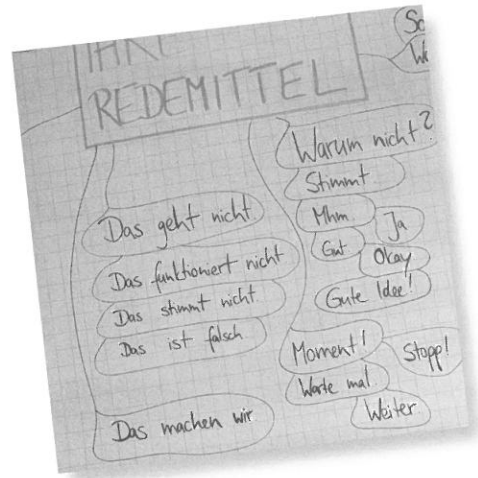 IHRE
REDEMITTEL
Das geht nicht
Das funktioniert nicht
Das stimmt nicht
Das ist falsch
Das machen wir
Warum nicht?
Stimmt
Mhm Ja
Gut Okay
Gute Idee!
Moment! Stopp!
Warte mal
Weiter